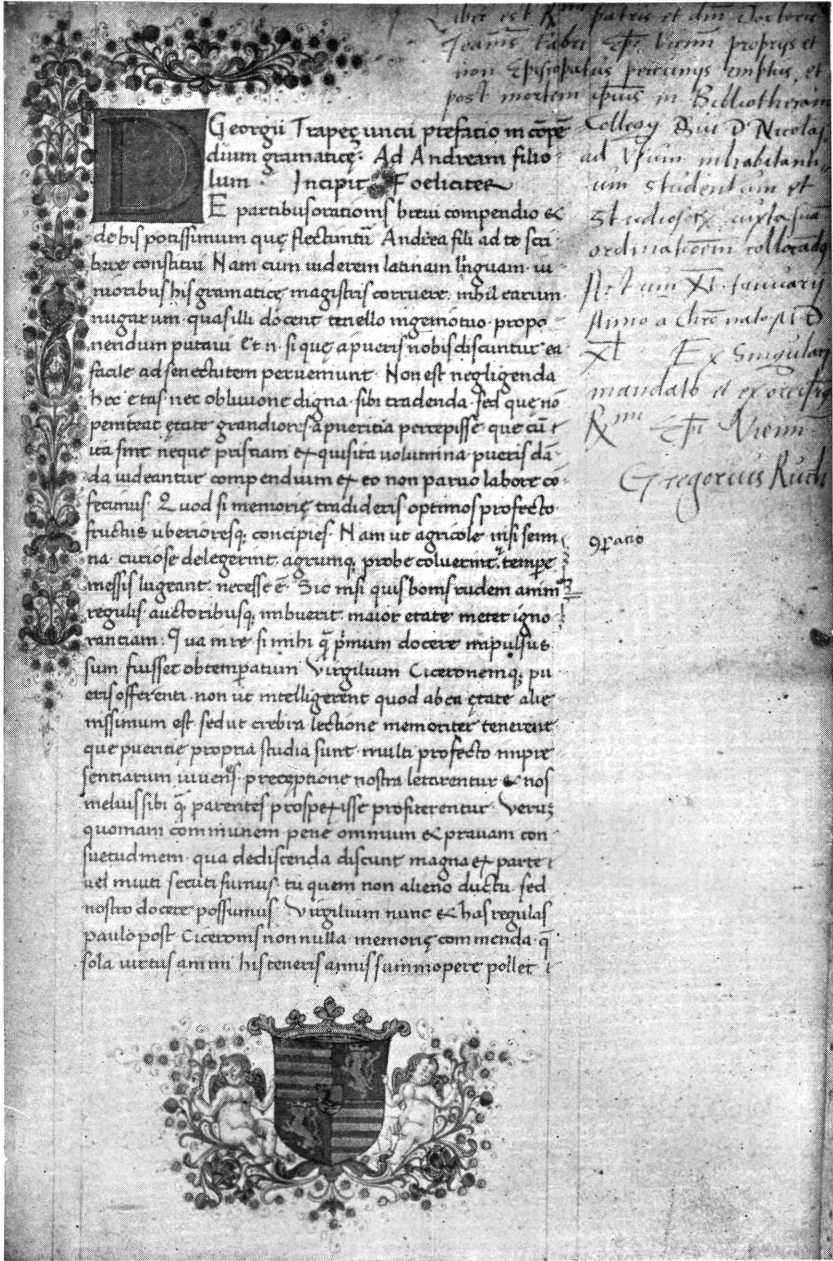 Georgii Trapeçuncii prefacio in cõpẽ
dium gramaticę. Ad Andream filio
lum Incipit Foeliciter
DE partibus orationis brevi compendio &
de his potissimum quę flectuntũr Andrea fili ad te scri
bere constitui Nam cum viderem latinam linguam
his gramaticę magistris corruere. nihil earum
nugarum quas illi docent tenello ingenio tuo propo
nendum putavi Et .n. si quę a pueris nobis discuntur ea
facile ad senectutem perveniunt. Non est negligenda
hec etas nec oblivione digna sibi tradenda sed que nõ
peniteat ętate grandiores a pueritia percepisse. que cũ
ita sint neque prisciani exquisita volumina pueris dã
da videantur compendium ex eo non parvo labore cõ
fecimus. Quod si memorię tradideris optimos profecto
fructus uberiores concipies. Nam ut agricole nisi semi
na curiose delegerint agrumq; probe coluerint. tempe
messis lugeant necesse ẽ. Sic nisi quis bonis rudem animũ
regulis auctoribusq; imbuerit maior etate metet igno
rantiam. Qua in re si mihi q̃ p̃mum docere impulsus
sum fuisset obtemperatum Virgilium Ciceronemq; pu
eris offerenti. non ut intelligerent quod ab ea ętate alie
nissimum est sed ut crebra lectione memoriter tenerent
que pueritie propria studia sunt multi profecto inpre
sentiarum iuvenes preceptione nostra letarentur & nos
melius sibi q̃ parentes prospexisse profiterentur. Verum
quoniam communem pene omnium & pravam con
suetudinem qua dediscenda discunt magna ex parte
vel inviti secuti sumus. tu quem non alieno ductu sed
nostro docere possumus. Virgilium nunc & has regulas
paulo post Ciceronis non nulla memorię commenda. q̃
sola virtus animi his teneris annis summopere pollet
Liber est Rmi patris et dni Doctoris
Joannis Fabri Epi Vienn proprijs et
non Episcopatus pecunijs emptus, et
post mortem ipsius in Bibliothecam
Collegij Divi D Nicolaj
ad Usum inhabitanti
um studentum et
Studiosorum iuxta suam
ordinationem collocandus
Actum XI. Januarij
Anno a Chro nato M D
XL Ex Singulari
mandato et ex
Rmi Epi Vienn
Gregorius Ruch
9patio